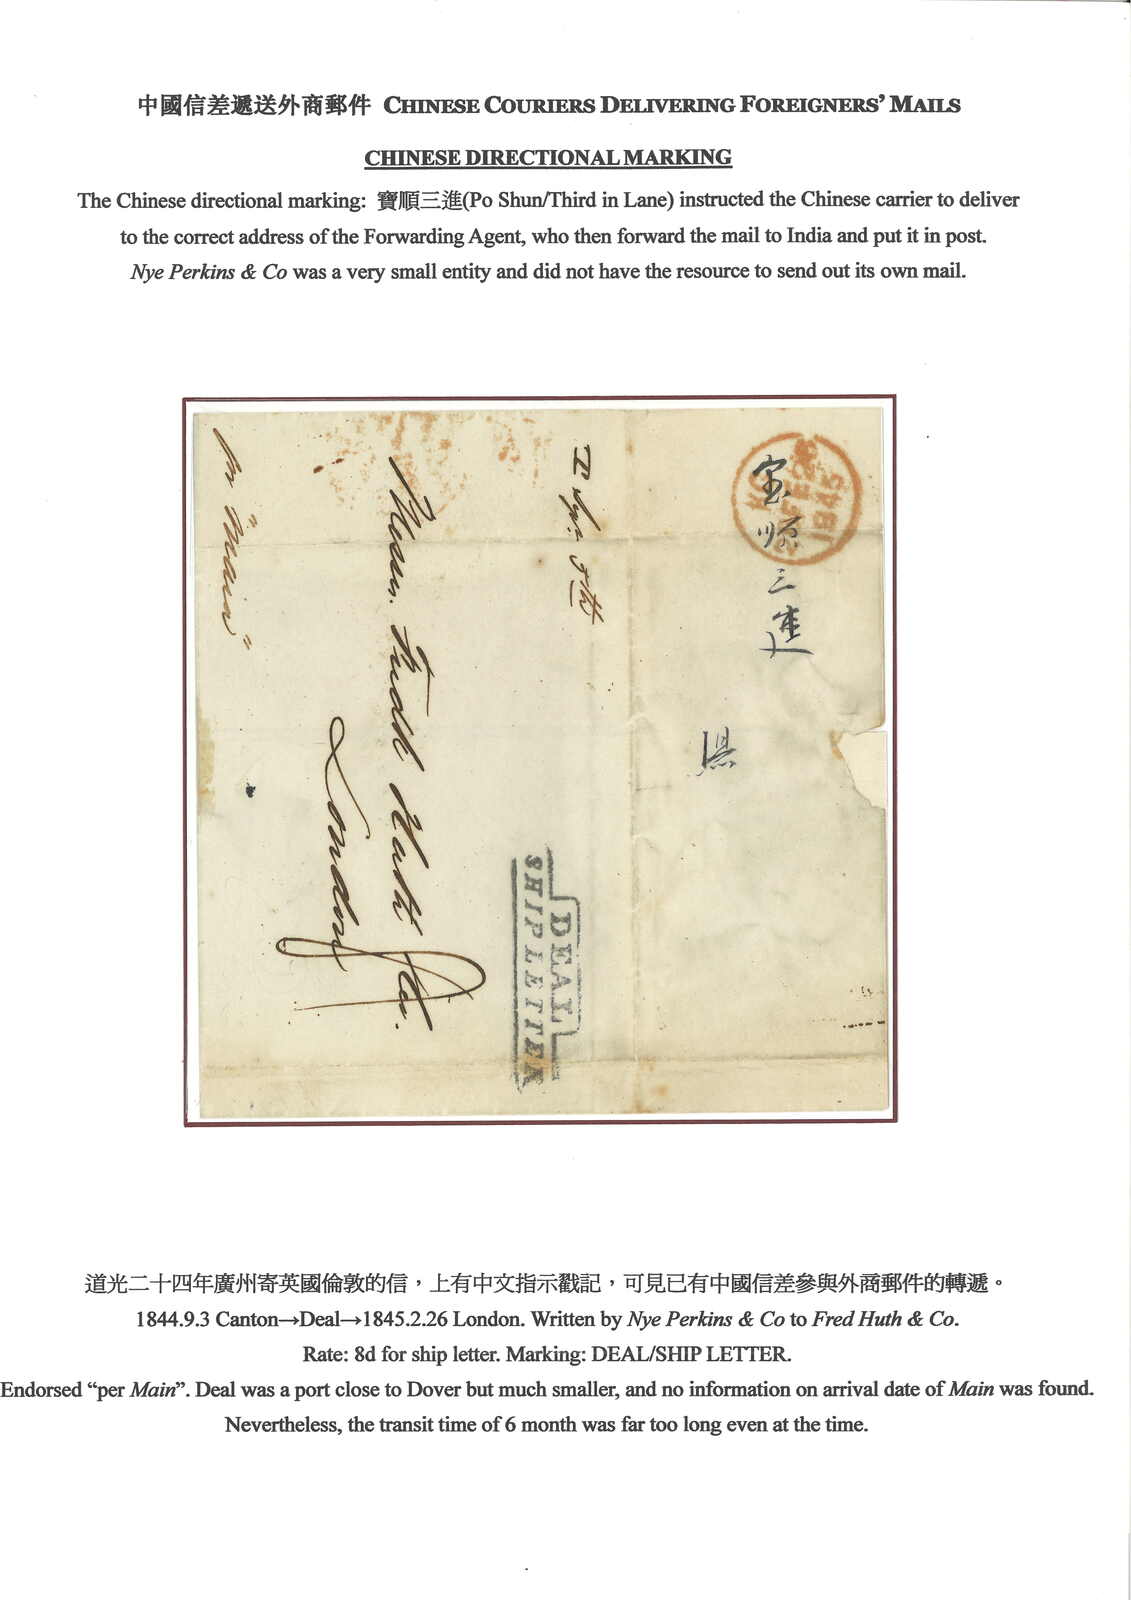 中國信差遞送外商郵件 CHINESE COURIERS DELIVERING FOREIGNERS' MAILS
CHINESE DIRECTIONAL MARKING
The Chinese directional marking: 寶順三進(Po Shun/Third in Lane) instructed the Chinese carrier to deliver
to the correct address of the Forwarding Agent, who then forward the mail to India and put it in post.
Nye Perkins & Co was a very small entity and did not have the resource to send out its own mail.
宝順三進
26
FE
1845
Messrs. Fredk Huth & Co.
London
DEAL
SHIP LETTER
道光二十四年廣州寄英國倫敦的信，上有中文指示戳記，可見已有中國信差參與外商郵件的轉遞。
1844.9.3 Canton→Deal→1845.2.26 London. Written by Nye Perkins & Co to Fred Huth & Co.
Rate: 8d for ship letter. Marking: DEAL/SHIP LETTER.
Endorsed “per Main”. Deal was a port close to Dover but much smaller, and no information on arrival date of Main was found.
Nevertheless, the transit time of 6 month was far too long even at the time.